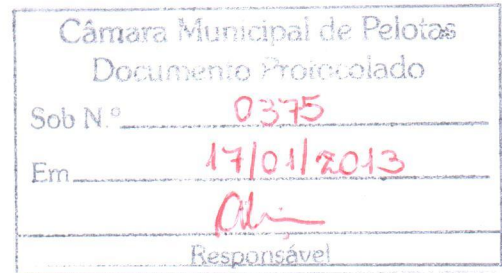 Câmara Municipal de Pelotas
Documento Protocolado
Sob N.º 0375
Em 17/01/2013
Responsável